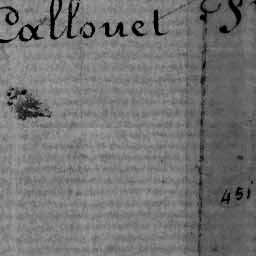 Callouet
451